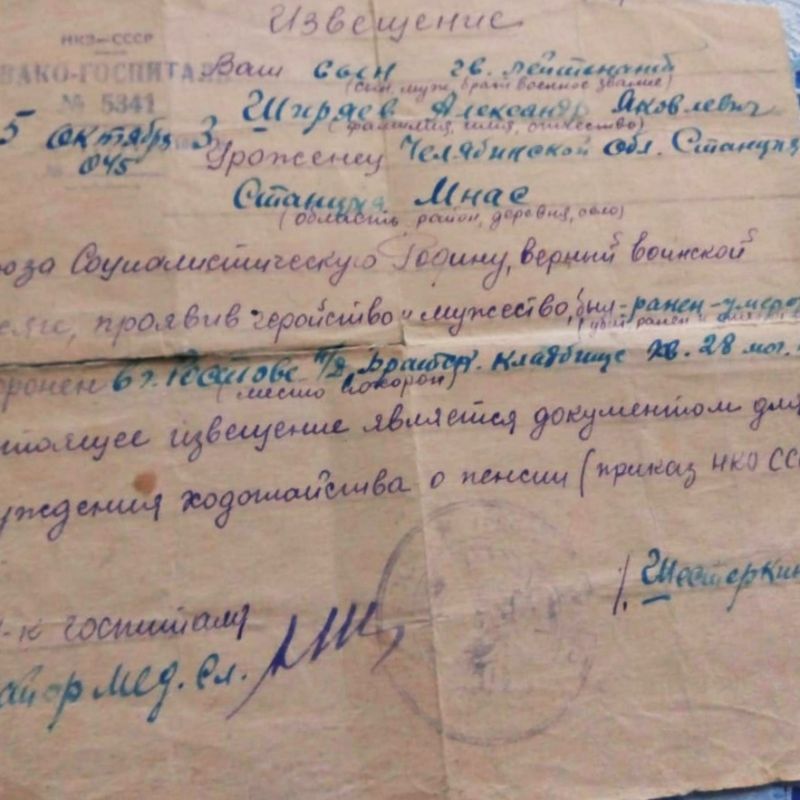 Извещение
НКЗ-СССР
ВАКО-ГОСПИТАЛ
№ 5341
5 октября
045
Ваш сын гв. лейтенант
(сын, муж, брат военное звание)
Ширяев Александр Яковлевич
(фамилия, имя, отчество)
Уроженец Челябинской обл. Станция
Станция Мнас
(область, район, деревня, село)
за Социалистическую Родину, верный воинской
проявив геройство и мужество, был ранен умер
ронен в г. Ростове н/Д, Братск. кладбище кв. 28 мог.
(место похорон)
стоящее извещение является документом для
уждения ходотайства о пенсии (приказ НКО ССС
к госпиталя
айор мед. сл.
Шестеркин